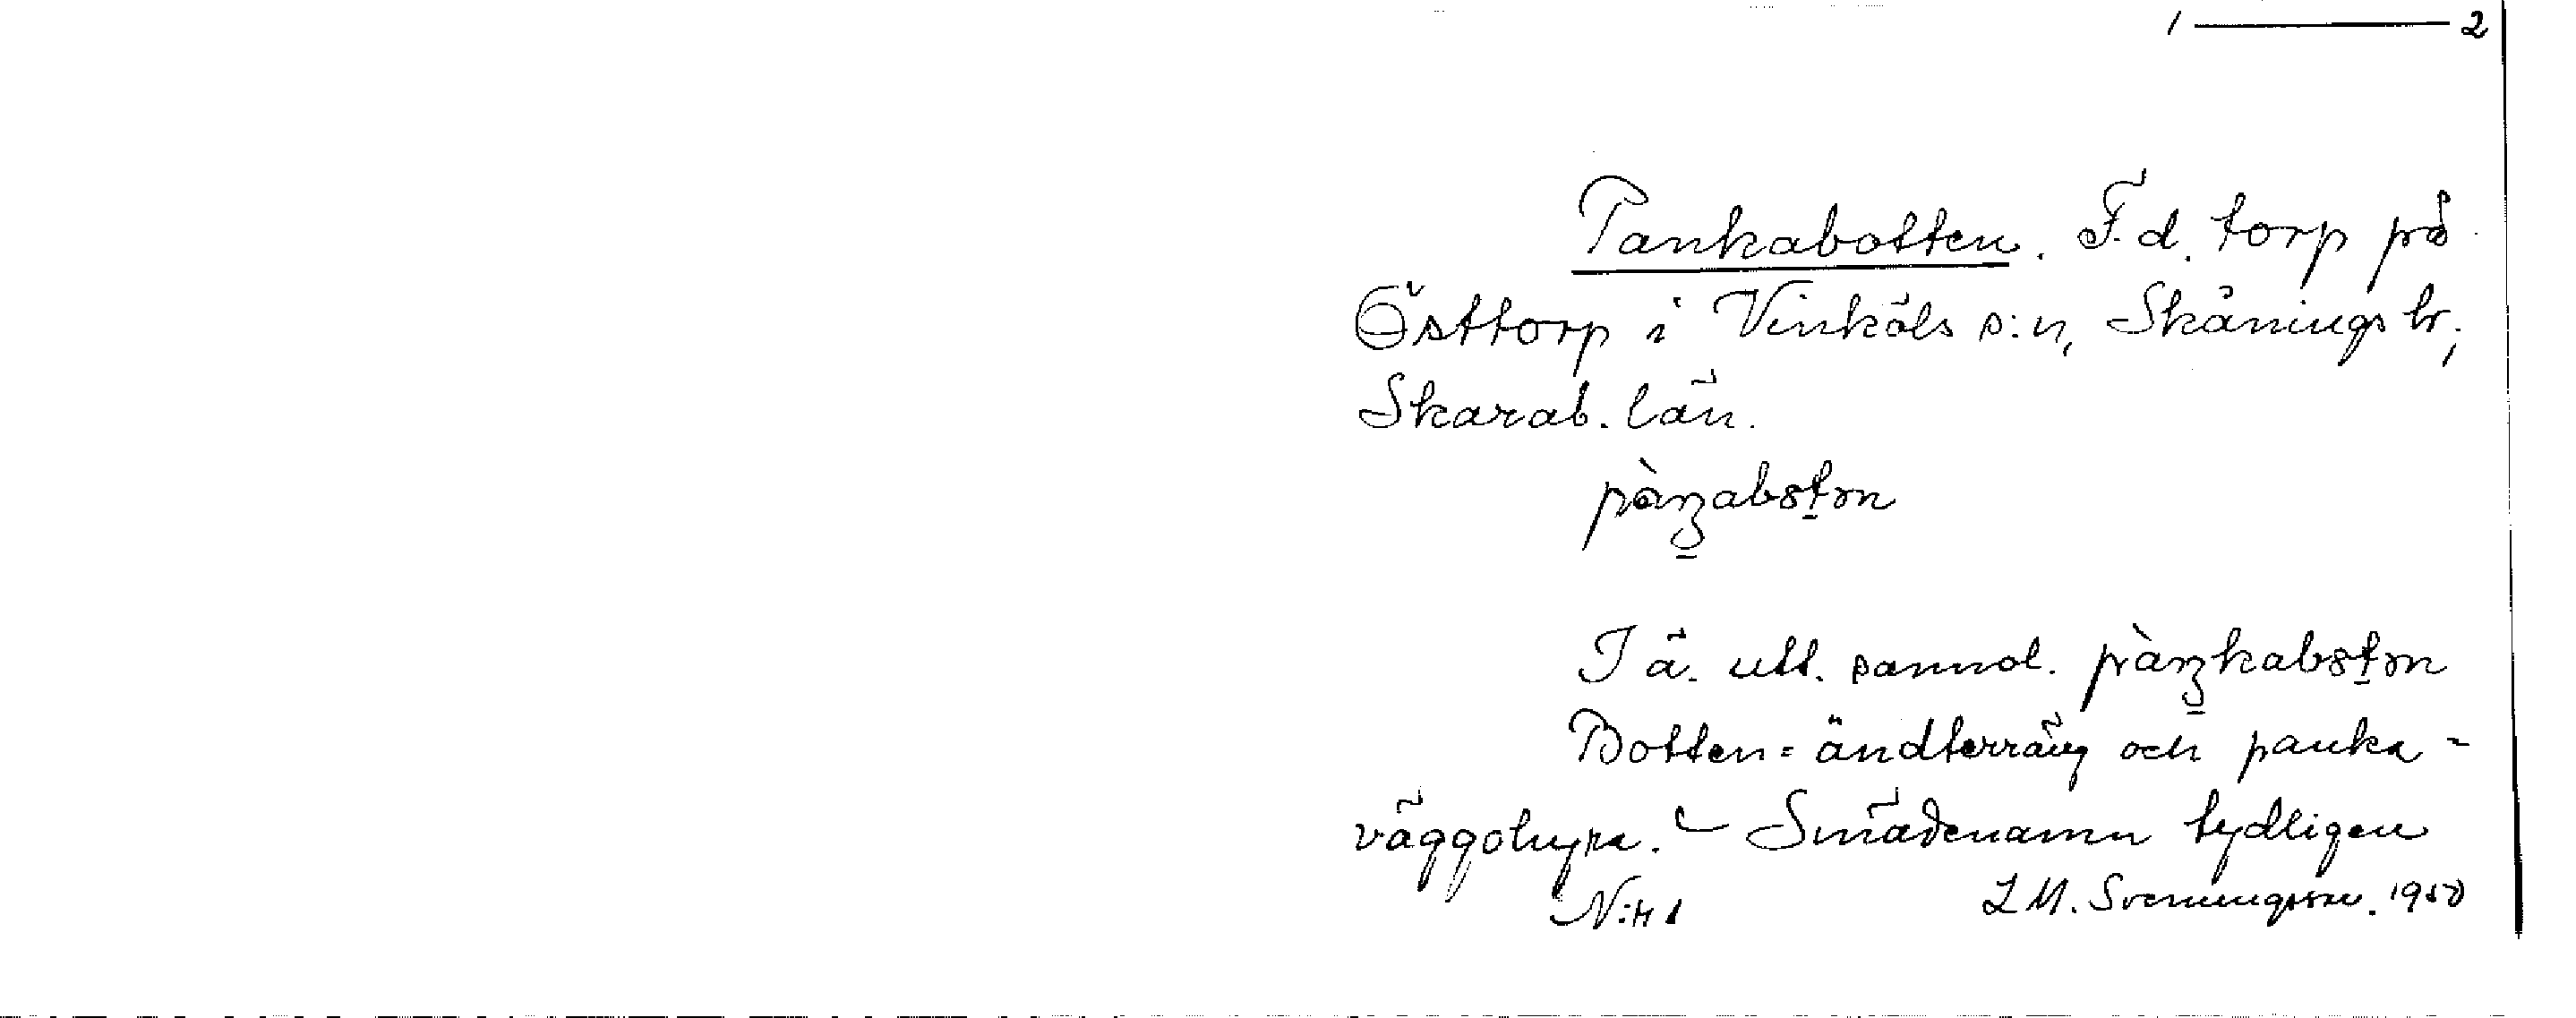 1 — 2
Pankabotten. F.d. torp på
Östtorp i Vinköls s:n, Skånings hr,
Skarab. län.
pàŋabɔtən
I ä. utt. sannol. pàŋkabɔtən
Botten = ändterräng och panka -
väggohyra. - Smädenamn tydligen
N:r 1 L M. Svenungsson. 1950